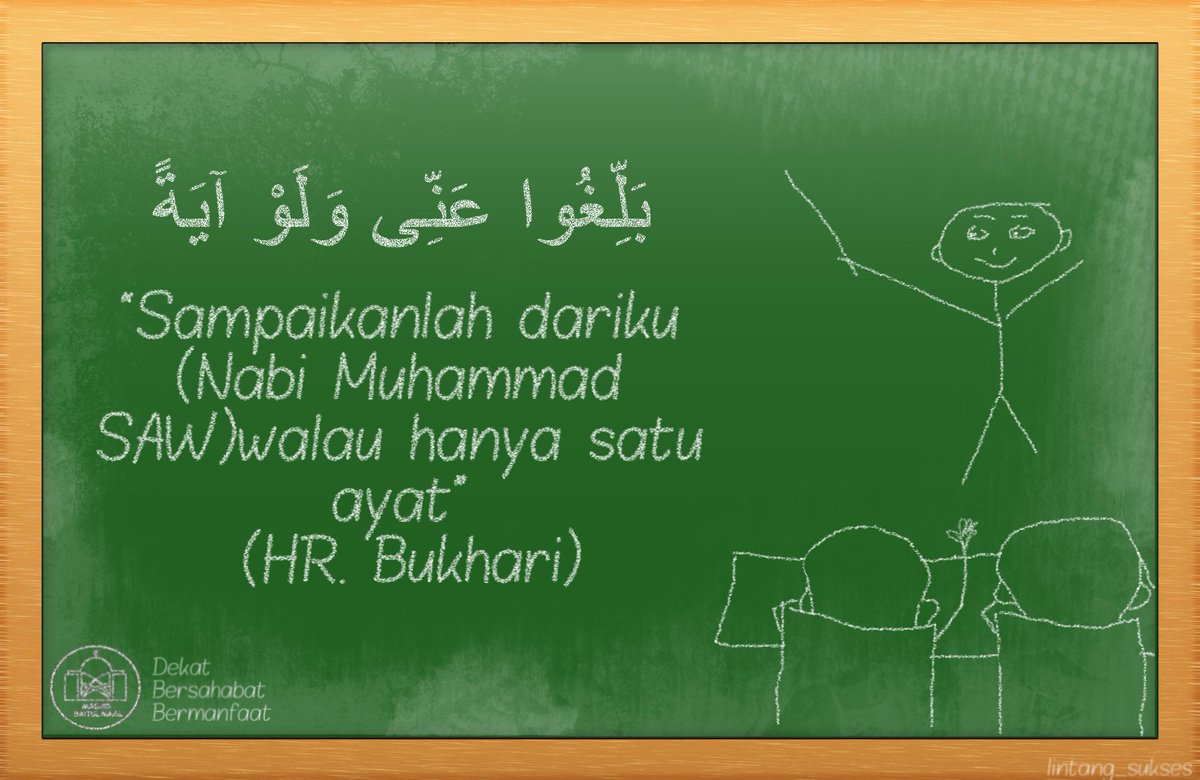 بَلِّغُوا عَنِّى وَلَوْ آيَةً
"Sampaikanlah dariku
(Nabi Muhammad
SAW)walau hanya satu
ayat"
(HR. Bukhari)
Dekat
Bersahabat
Bermanfaat
lintang_sukses